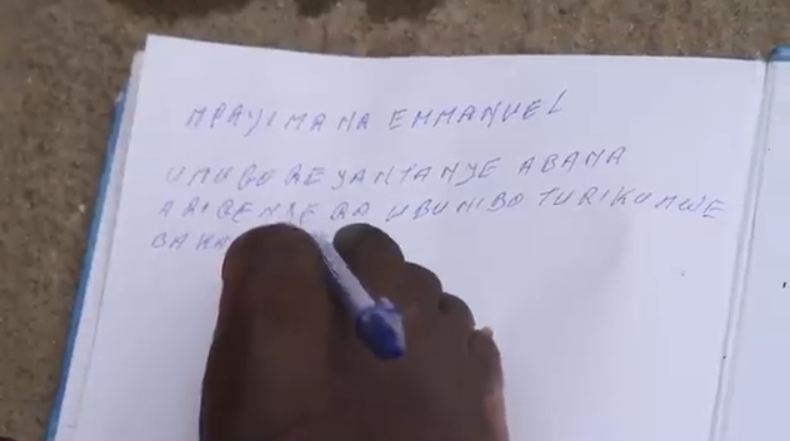 MPAYIMANA EMMANUEL
UMUGOREYANTANYE ABANA
ARIGENDERA UBUNIBO TURIKUMWE
BAKA